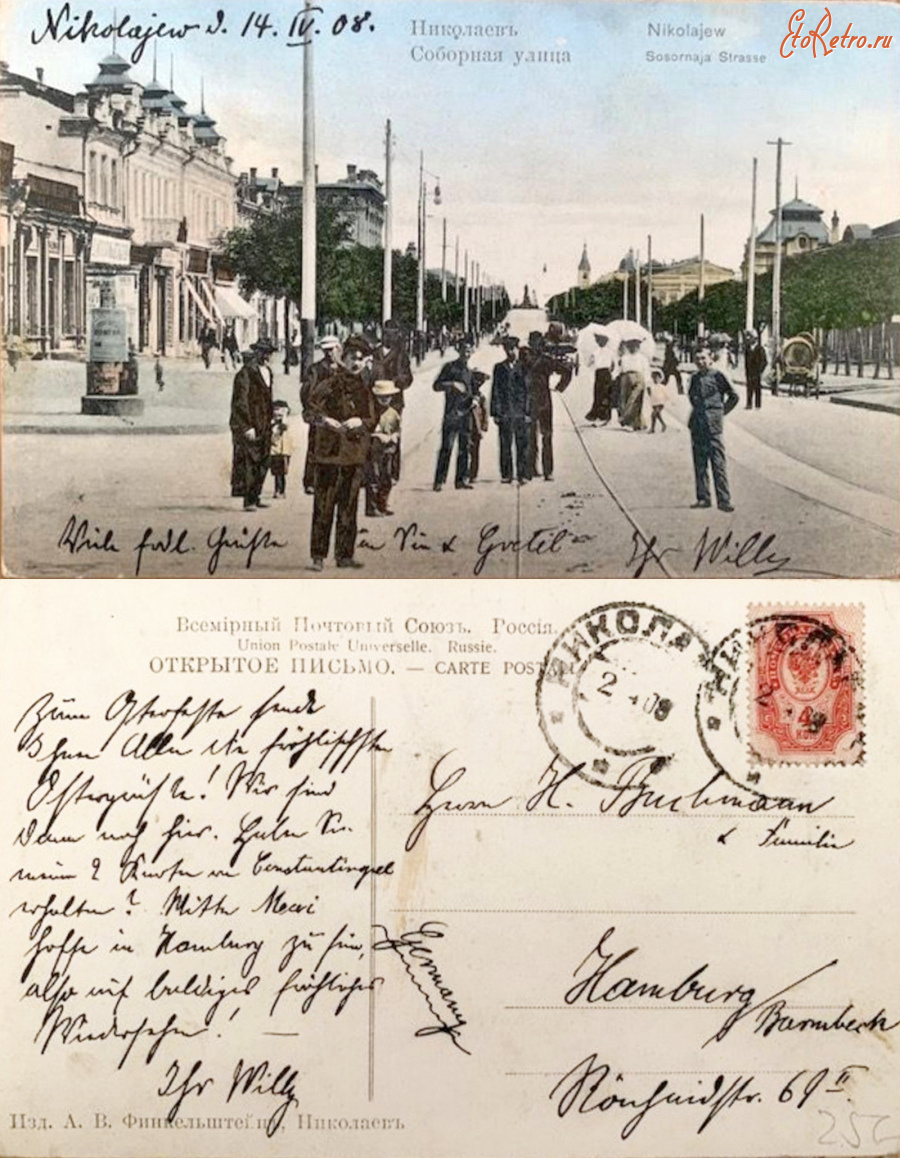 Nikolajew d. 14. IV. 08.
Николаевъ
Соборная улица
Nikolajew
Sosornaja Strasse
EtoRetro.ru
Viele frdl. Grüße an Sie & Gretel Ihr Willy
Всемірный Почтовый Союзъ. Россія.
Union Postale Universelle. Russie.
ОТКРЫТОЕ ПИСЬМО. — CARTE POSTALE
НИКОЛА
2 4 08
4
КОП
Zum Osterfeste sende
Ihnen Allen die fröhlichsten
Ostergrüße! Wir sind
dann noch hier. Haben Sie
meine 2 Karten von Constantinopel
erhalten? Mitte Mai
hoffe in Hamburg zu sein,
also auf baldiges, fröhliches
Wiedersehen! —
Ihr Willy
Herrn H.
& Familie
Germany
Hamburg/
Barmbeck
Rönhaidstr. 69 II
Изд. А. В. Финкельштейнъ, Николаевъ